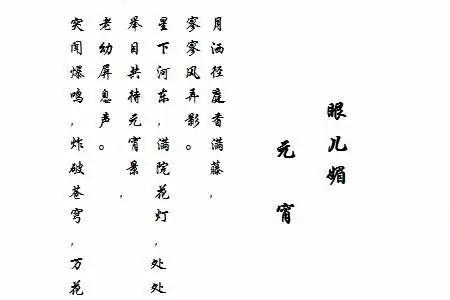 眼儿媚
元宵
月洒径庭香满藤，
寥寥风弄影。
星下河东，满院花灯，处处
举目共待元宵景，
老幼屏息声。
突闻爆鸣，炸破苍穹，万花